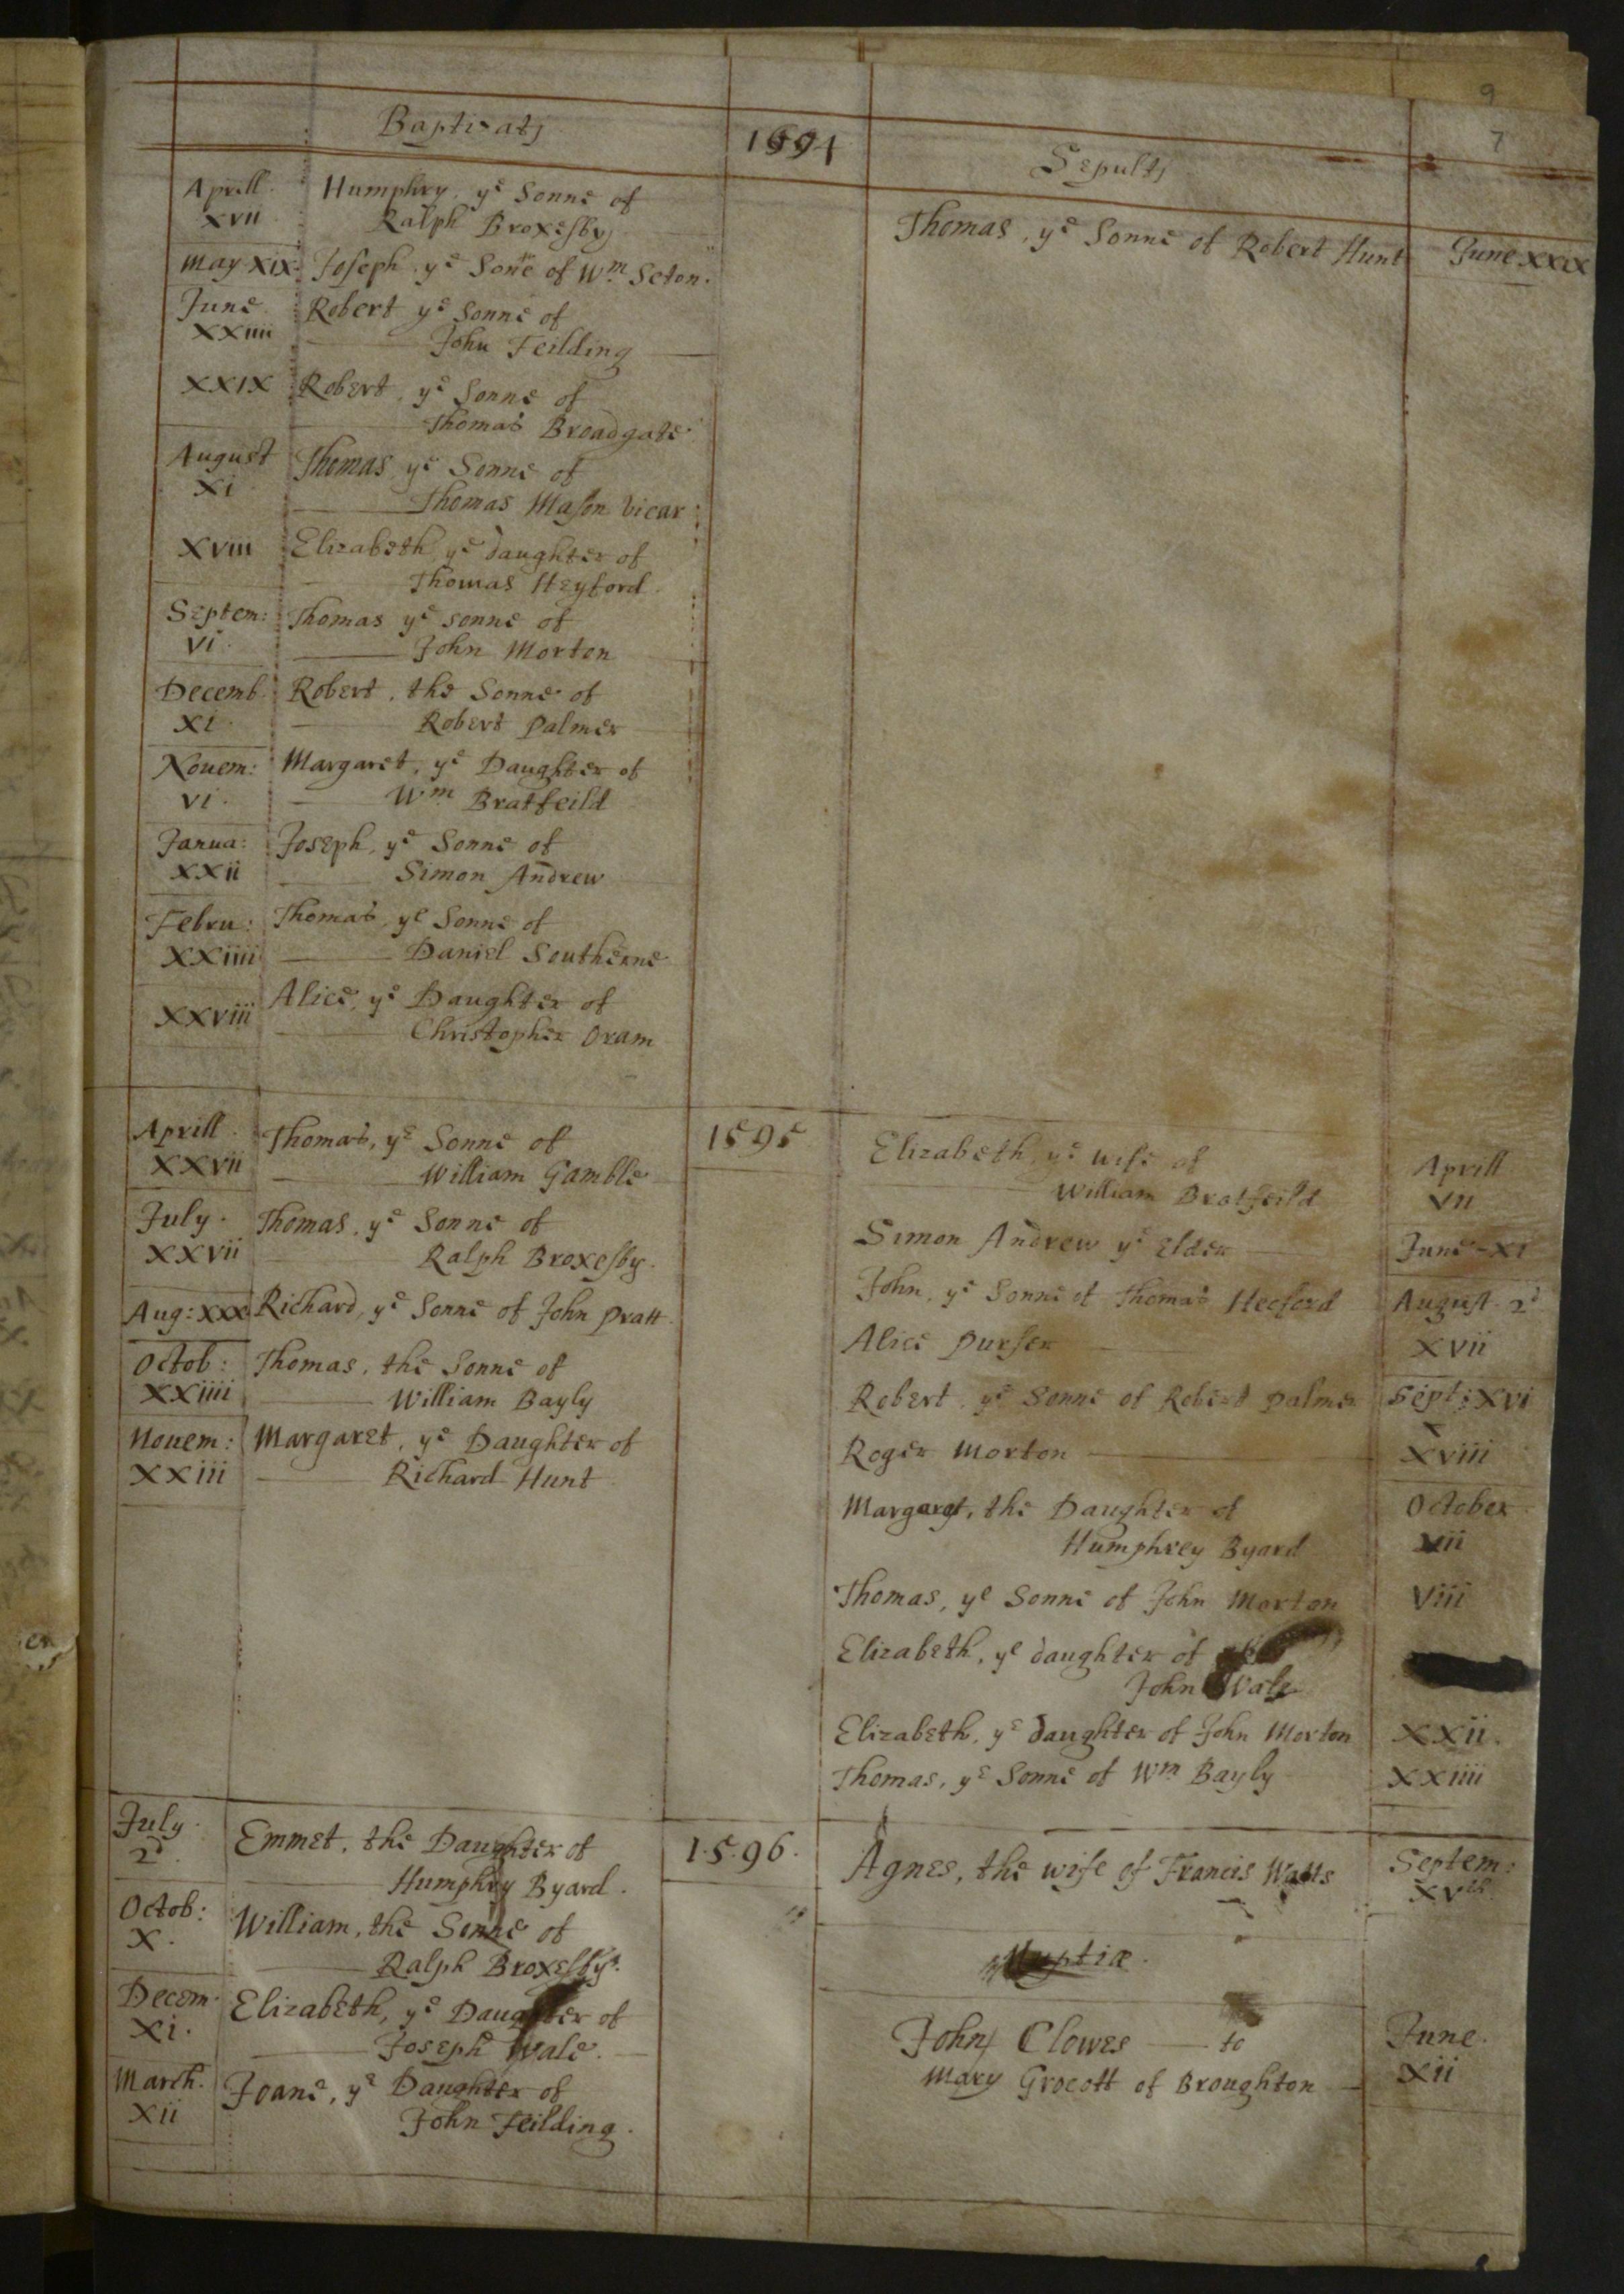 9
7
Baptizatj
1594
Sepultj
Aprill. Humphry. yᵉ Sonne of
xvii Ralph Broxesby
May XIX. Joseph. yᵉ Sone of Wᵐ Seton.
June Robert yᵉ Sonne of
XXiiii John Feilding
XXIX Robert, yᵉ Sonne of
Thomas Broadgate
August Thomas yᵉ Sonne of
Xi Thomas Mason Vicar
Xviii Elizabeth yᵉ daughter of
Thomas Heyford.
Septem: Thomas yᵉ sonne of
Vi. John Morton
Decemb. Robert. the Sonne of
XI. Robert Palmer
Nouem: Margaret, yᵉ Daughter of
Vi. Wᵐ Bratfeild
Janua: Joseph, yᵉ Sonne of
XXii Simon Andrew
Febru: Thomas, yᵉ Sonne of
XXiiii Daniel Southerne
XXviii Alice, yᵉ Daughter of
Christopher Oram
Thomas, yᵉ Sonne of Robert Hunt June XXIX
1595
Aprill. Thomas, yᵉ Sonne of
XXvii William Gamble
July. Thomas, yᵉ Sonne of
XXvii Ralph Broxesby.
Aug: XXX Richard, yᵉ Sonne of John Pratt.
Octob: Thomas, the Sonne of
XXiiii William Bayly
Nouem: Margaret, yᵉ Daughter of
XXiii Richard Hunt
Elizabeth yᵉ wife of Aprill
William Bratfeild VII
Simon Andrew yᵉ Elder June - XI
John, yᵉ Sonne of Thomas Heeford August 2ᵈ
Alice Purser Xvii
Robert, yᵉ Sonne of Robert Palmer Sept: Xvi
Roger Morton Xviii
Margaret, the Daughter of October
Humphrey Byard vii
Thomas, yᵉ Sonne of John Morton Viii
Elizabeth, yᵉ daughter of
John Wale
Elizabeth, yᵉ daughter of John Morton XXii.
Thomas, yᵉ Sonne of Wᵐ Bayly XXiiii
1.5.96.
July. Emmet, the Daughter of
2ᵈ. Humphry Byard.
Octob: William, the Sonne of
X. Ralph Broxesby.
Decem. Elizabeth, yᵉ Daughter of
XI. Joseph Wale.
March. Joane, yᵉ Daughter of
Xii John Feilding.
Agnes, the wife of Francis Watts Septem:
XVᵗʰ
Nuptiæ.
John Clowes to June.
Mary Grocott of Broughton Xii